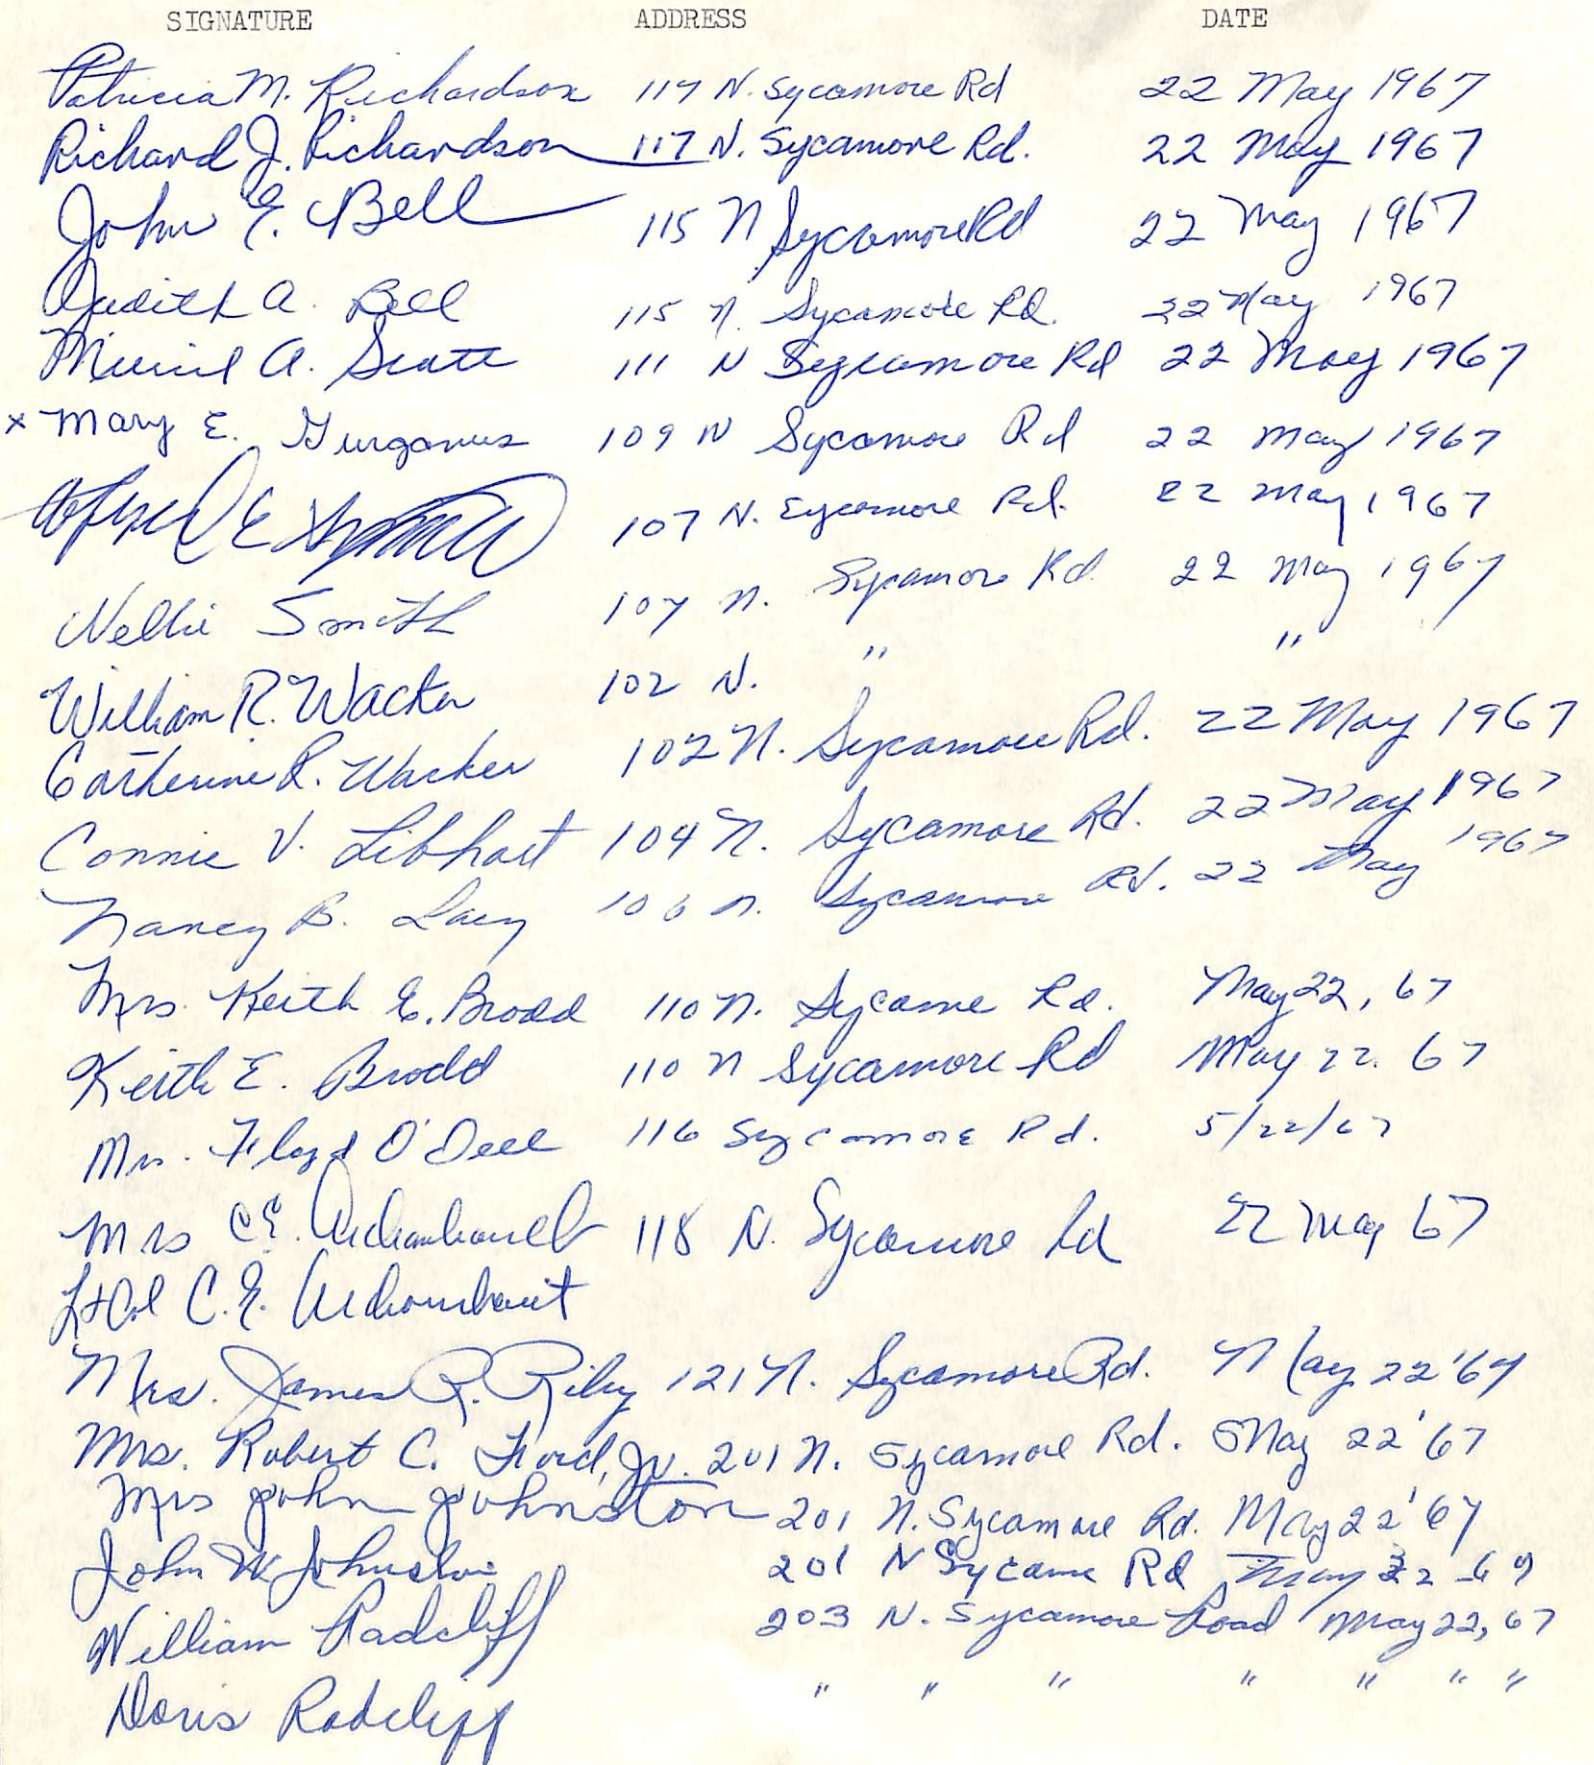 SIGNATURE ADDRESS DATE
Patricia M. Richardson 117 N. Sycamore Rd 22 May 1967
Richard J. Richardson 117 N. Sycamore Rd. 22 May 1967
John E. Bell 115 N Sycamore Rd 22 May 1967
Judith A. Bell 115 N. Sycamore Rd. 22 May 1967
A. Scott 111 N Sycamore Rd 22 May 1967
x Mary E. Gurganus 109 N Sycamore Rd 22 May 1967
E 107 N. Sycamore Rd. 22 May 1967
Nellie Smith 107 N. Sycamore Rd. 22 May 1967
William R. Wacker 102 N. " "
Catherine R. Wacker 102 N. Sycamore Rd. 22 May 1967
Connie V. Libhart 104 N. Sycamore Rd. 22 May 1967
Nancy B. Lacy 106 N. Sycamore Rd. 22 May 1967
Mrs. Keith E. Brodd 110 N. Sycame Rd. May 22, 67
Keith E. Brodd 110 N Sycamore Rd May 22. 67
Mrs. Floyd O'Dell 116 Sycamore Rd. 5/22/67
Mrs C.E. 118 N. Sycamore Rd 22 May 67
Lt Col C. E.
Mrs. James R. Riley 121 N. Sycamore Rd. May 22 '67
Mrs. Robert C. Ford, Jr. 201 N. Sycamore Rd. May 22 '67
Mrs John Johnston 201 N. Sycamore Rd. May 22 '67
John W Johnston 201 N Sycame Rd May 22 -67
William Radcliff 203 N. Sycamore Road May 22, 67
Doris Radcliff " " " " " " "